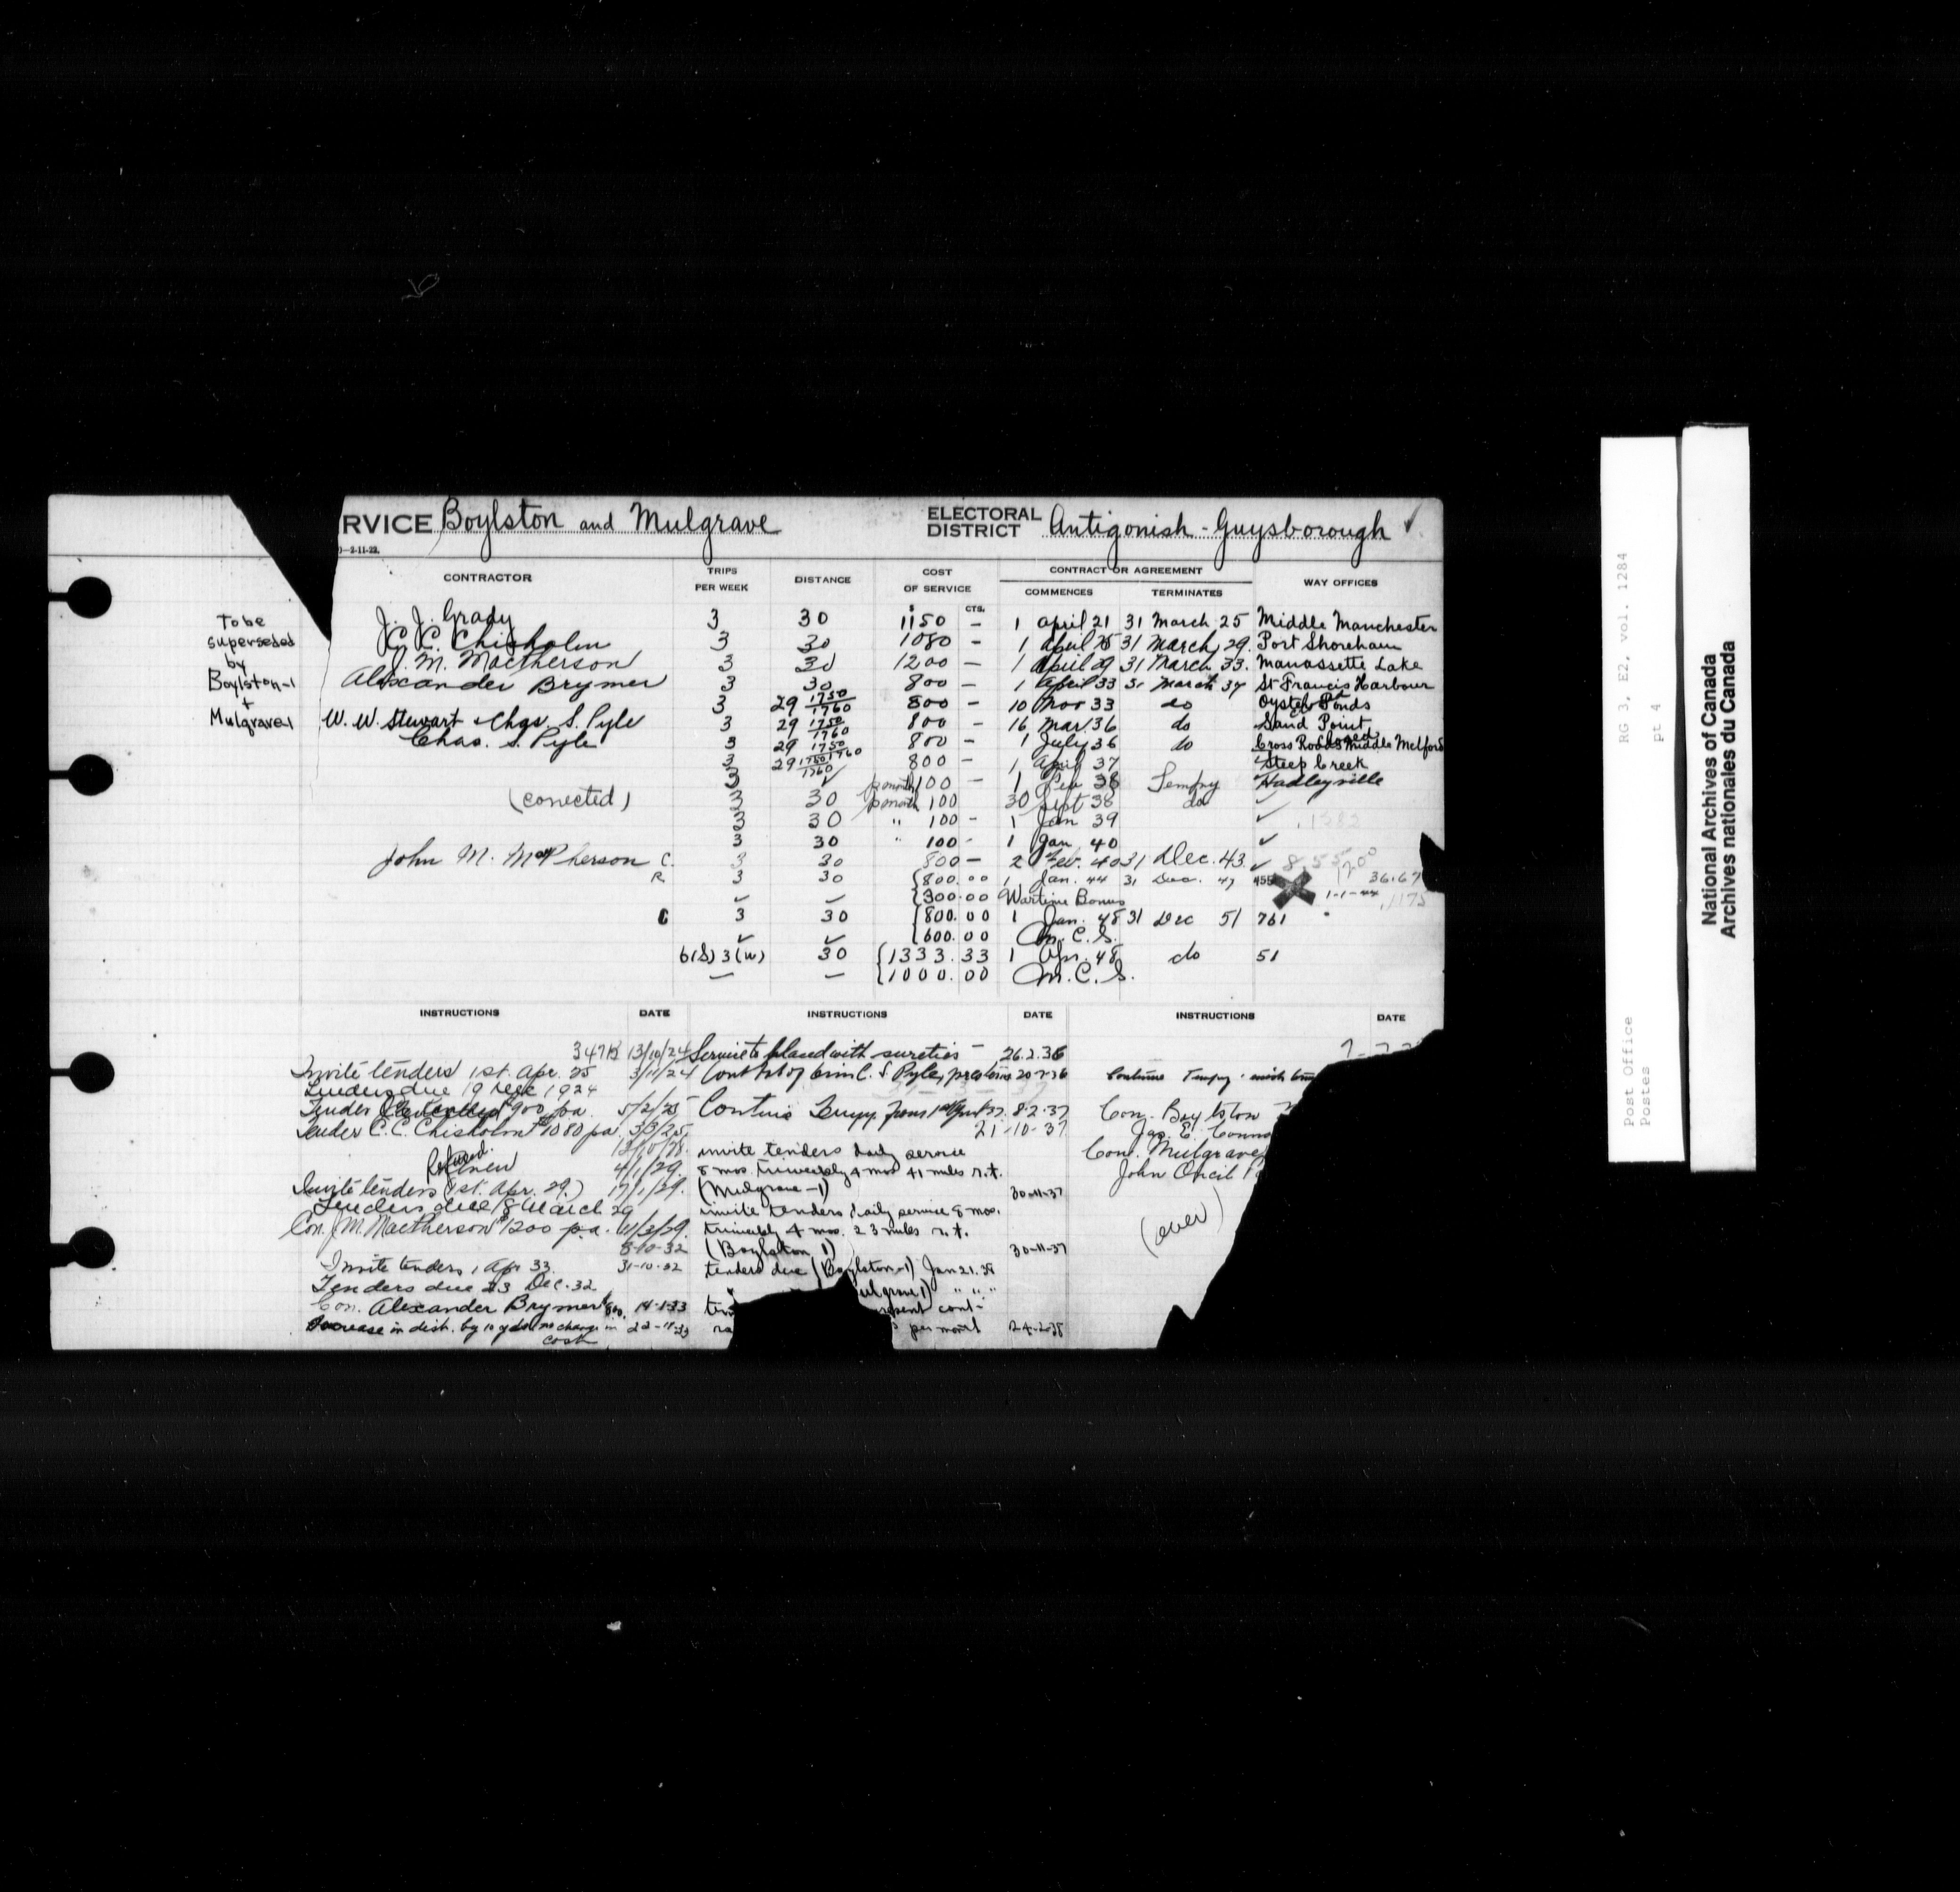 RVICE Boylston and Mulgrave ELECTORAL DISTRICT Antigonish - Guysborough ✓
2-11-22.
CONTRACTOR TRIPS PER WEEK DISTANCE COST OF SERVICE CONTRACT OR AGREEMENT WAY OFFICES
COMMENCES TERMINATES
$ CTS.
To be
superseded
by
Boylston-1
+
Mulgrave 1
J. J. Grady 3 30 1150 – 1 April 21 31 March 25 Middle Manchester
C. C. Chisholm 3 30 1080 – 1 April 25 31 March 29. Port Shoreham
J. M. MacPherson 3 30 1200 – 1 April 29 31 March 33. Manassette Lake
Alexander Brymer 3 30 800 – 1 April 33 31 March 37 St Francis Harbour
3 29 1750/1760 800 – 10 Nov 33 do Oyster Ponds
W. W. Stewart & Chas. S. Pyle 3 29 1750/1760 800 – 16 Mar. 36 do Sand Point
Chas. S. Pyle 3 29 1750/1760 800 – 1 July 36 do Cross Roads Middle Melford
closed
3 29 1750/1760 800 – 1 April 37 Steep Creek
3 ✓ p month 100 – 1 38 Tempry Hadleyville
(corrected) 3 30 p month 100 30 Sept 38 do ✓
3 30 " 100 – 1 Jan 39 ✓
3 30 " 100 – 1 Jan 40 ✓
John M. McPherson C. 3 30 800 – 2 Feb. 40 31 Dec. 43 ✓
R. 3 30 {800.00 1 Jan. 44 31 Dec. 47 455 36.67
✓ – {300.00 Wartime Bonus 1-1-44
C 3 30 {800.00 1 Jan. 48 31 Dec 51 761
✓ ✓ {600.00 M.C.S.
6(S) 3(W) 30 {1333.33 1 Apr. 48 do 51
– – {1000.00 M.C.S.
INSTRUCTIONS DATE INSTRUCTIONS DATE INSTRUCTIONS DATE
13/10/24
Invite tenders 1st. Apr. 25 3/11/24
Tenders due 19 Dec 1924
Tender $900 pa. 5/2/25
Tender C. C. Chisholm $1080 pa. 3/3/25
13/10/28.
Renew 4/1/29.
refused.
Invite tenders (1st. Apr. 29.) 17/1/29.
Tenders due 8 March 29
Con. J. M. MacPherson $1200 p.a.
8-10-32
Invite tenders 1 Apr 33. 31-10-32
Tenders due 23 Dec. 32
Con. Alexander Brymer 14-1-33
in dist. by 10 yds no change in cost
Service to placed with sureties – 26.2.36
C. S. Pyle,
Continue Tempy from 8.2.37
21-10-37
invite tenders daily service
8 mos. triweekly 4 mos 41 miles r.t.
(Mulgrave –1) 30-11-37
invite tenders daily service 8 mos.
triweekly 4 mos. 23 miles r.t.
(Boylston 1) 30-11-37
tenders due (Boylston-1) Jan 21. 38
ulgrave 1) " " "
ten
cont-
ra per month 24-2-38
Continue Tempy
Con. Boylston
Jas. E.
Con. Mulgrave
John
(over)
RG 3, E2, vol. 1284
pt 4
Post Office
Postes
National Archives of Canada
Archives nationales du Canada